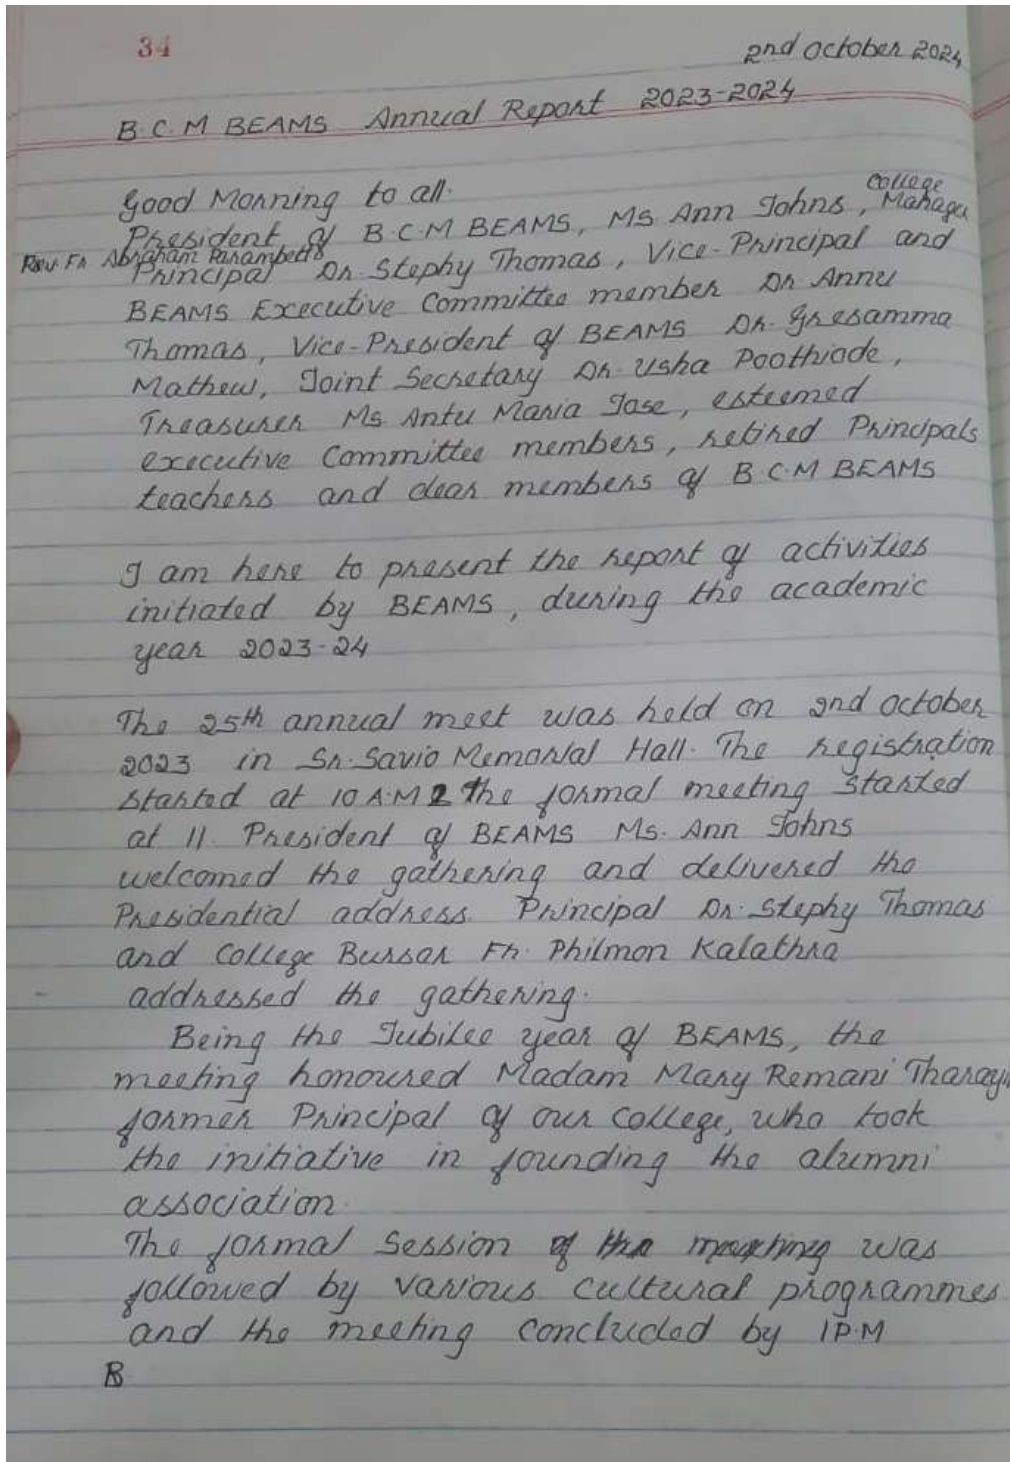 34
2nd October 2024
B.C.M BEAMS Annual Report 2023-2024
Good Morning to all.
College
President of B.C.M BEAMS, Ms Ann Johns, Manager
Rev. Fr Abraham Parambettu
Principal Dr. Stephy Thomas, Vice-Principal and
BEAMS Executive Committee member Dr Annu
Thomas, Vice-President of BEAMS Dr. Gresamma
Mathew, Joint Secretary Dr. Usha Poothiode,
Treasurer Ms. Antu Maria Jose, esteemed
executive Committee members, retired Principals
teachers and dear members of B.C.M BEAMS
I am here to present the report of activities
initiated by BEAMS, during the academic
year 2023-24
The 25th annual meet was held on 2nd October
2023 in Sr. Savio Memorial Hall. The registration
started at 10 A.M & the formal meeting started
at 11. President of BEAMS Ms. Ann Johns
welcomed the gathering and delivered the
Presidential address. Principal Dr. Stephy Thomas
and College Bursar Fr. Philmon Kalathra
addressed the gathering.
Being the Jubilee year of BEAMS, the
meeting honoured Madam Mary Remani Tharayil
former Principal of our College, who took
the initiative in founding the alumni
association.
The formal Session of the meeting was
followed by various cultural programmes
and the meeting concluded by 1P.M